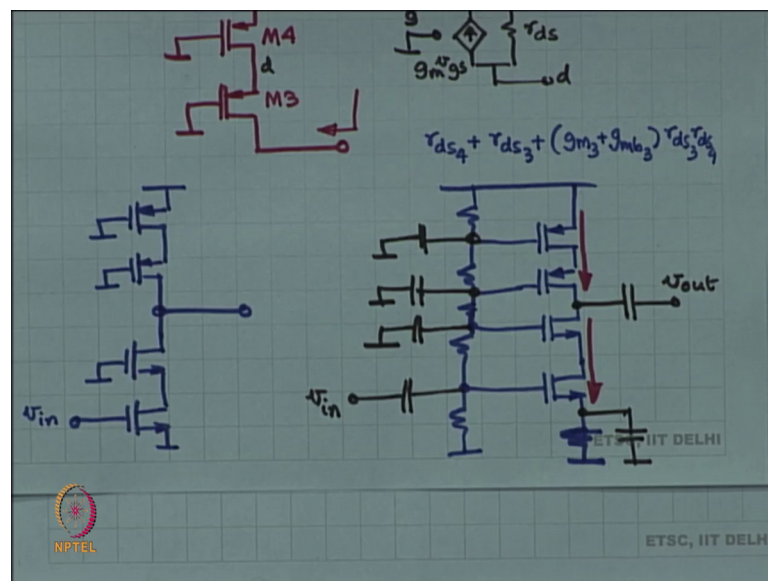 M4
d
M3
g
gmvgs
rds
d
rds4 + rds3 + (gm3 + gmb3) rds3 rds4
vin
vin
vout
ETSC, IIT DELHI
NPTEL
ETSC, IIT DELH